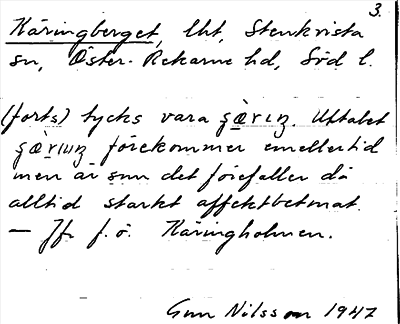 3.
Käringberget, lht, Stenkvista
sn, Öster-Rekarne hd, Söd l.
(forts) tycks vara
förekommer emellertid
men är som det förefaller då
alltid starkt affektbetonat.
— Jfr f.ö. Käringholmen.
Gun Nilsson 1947